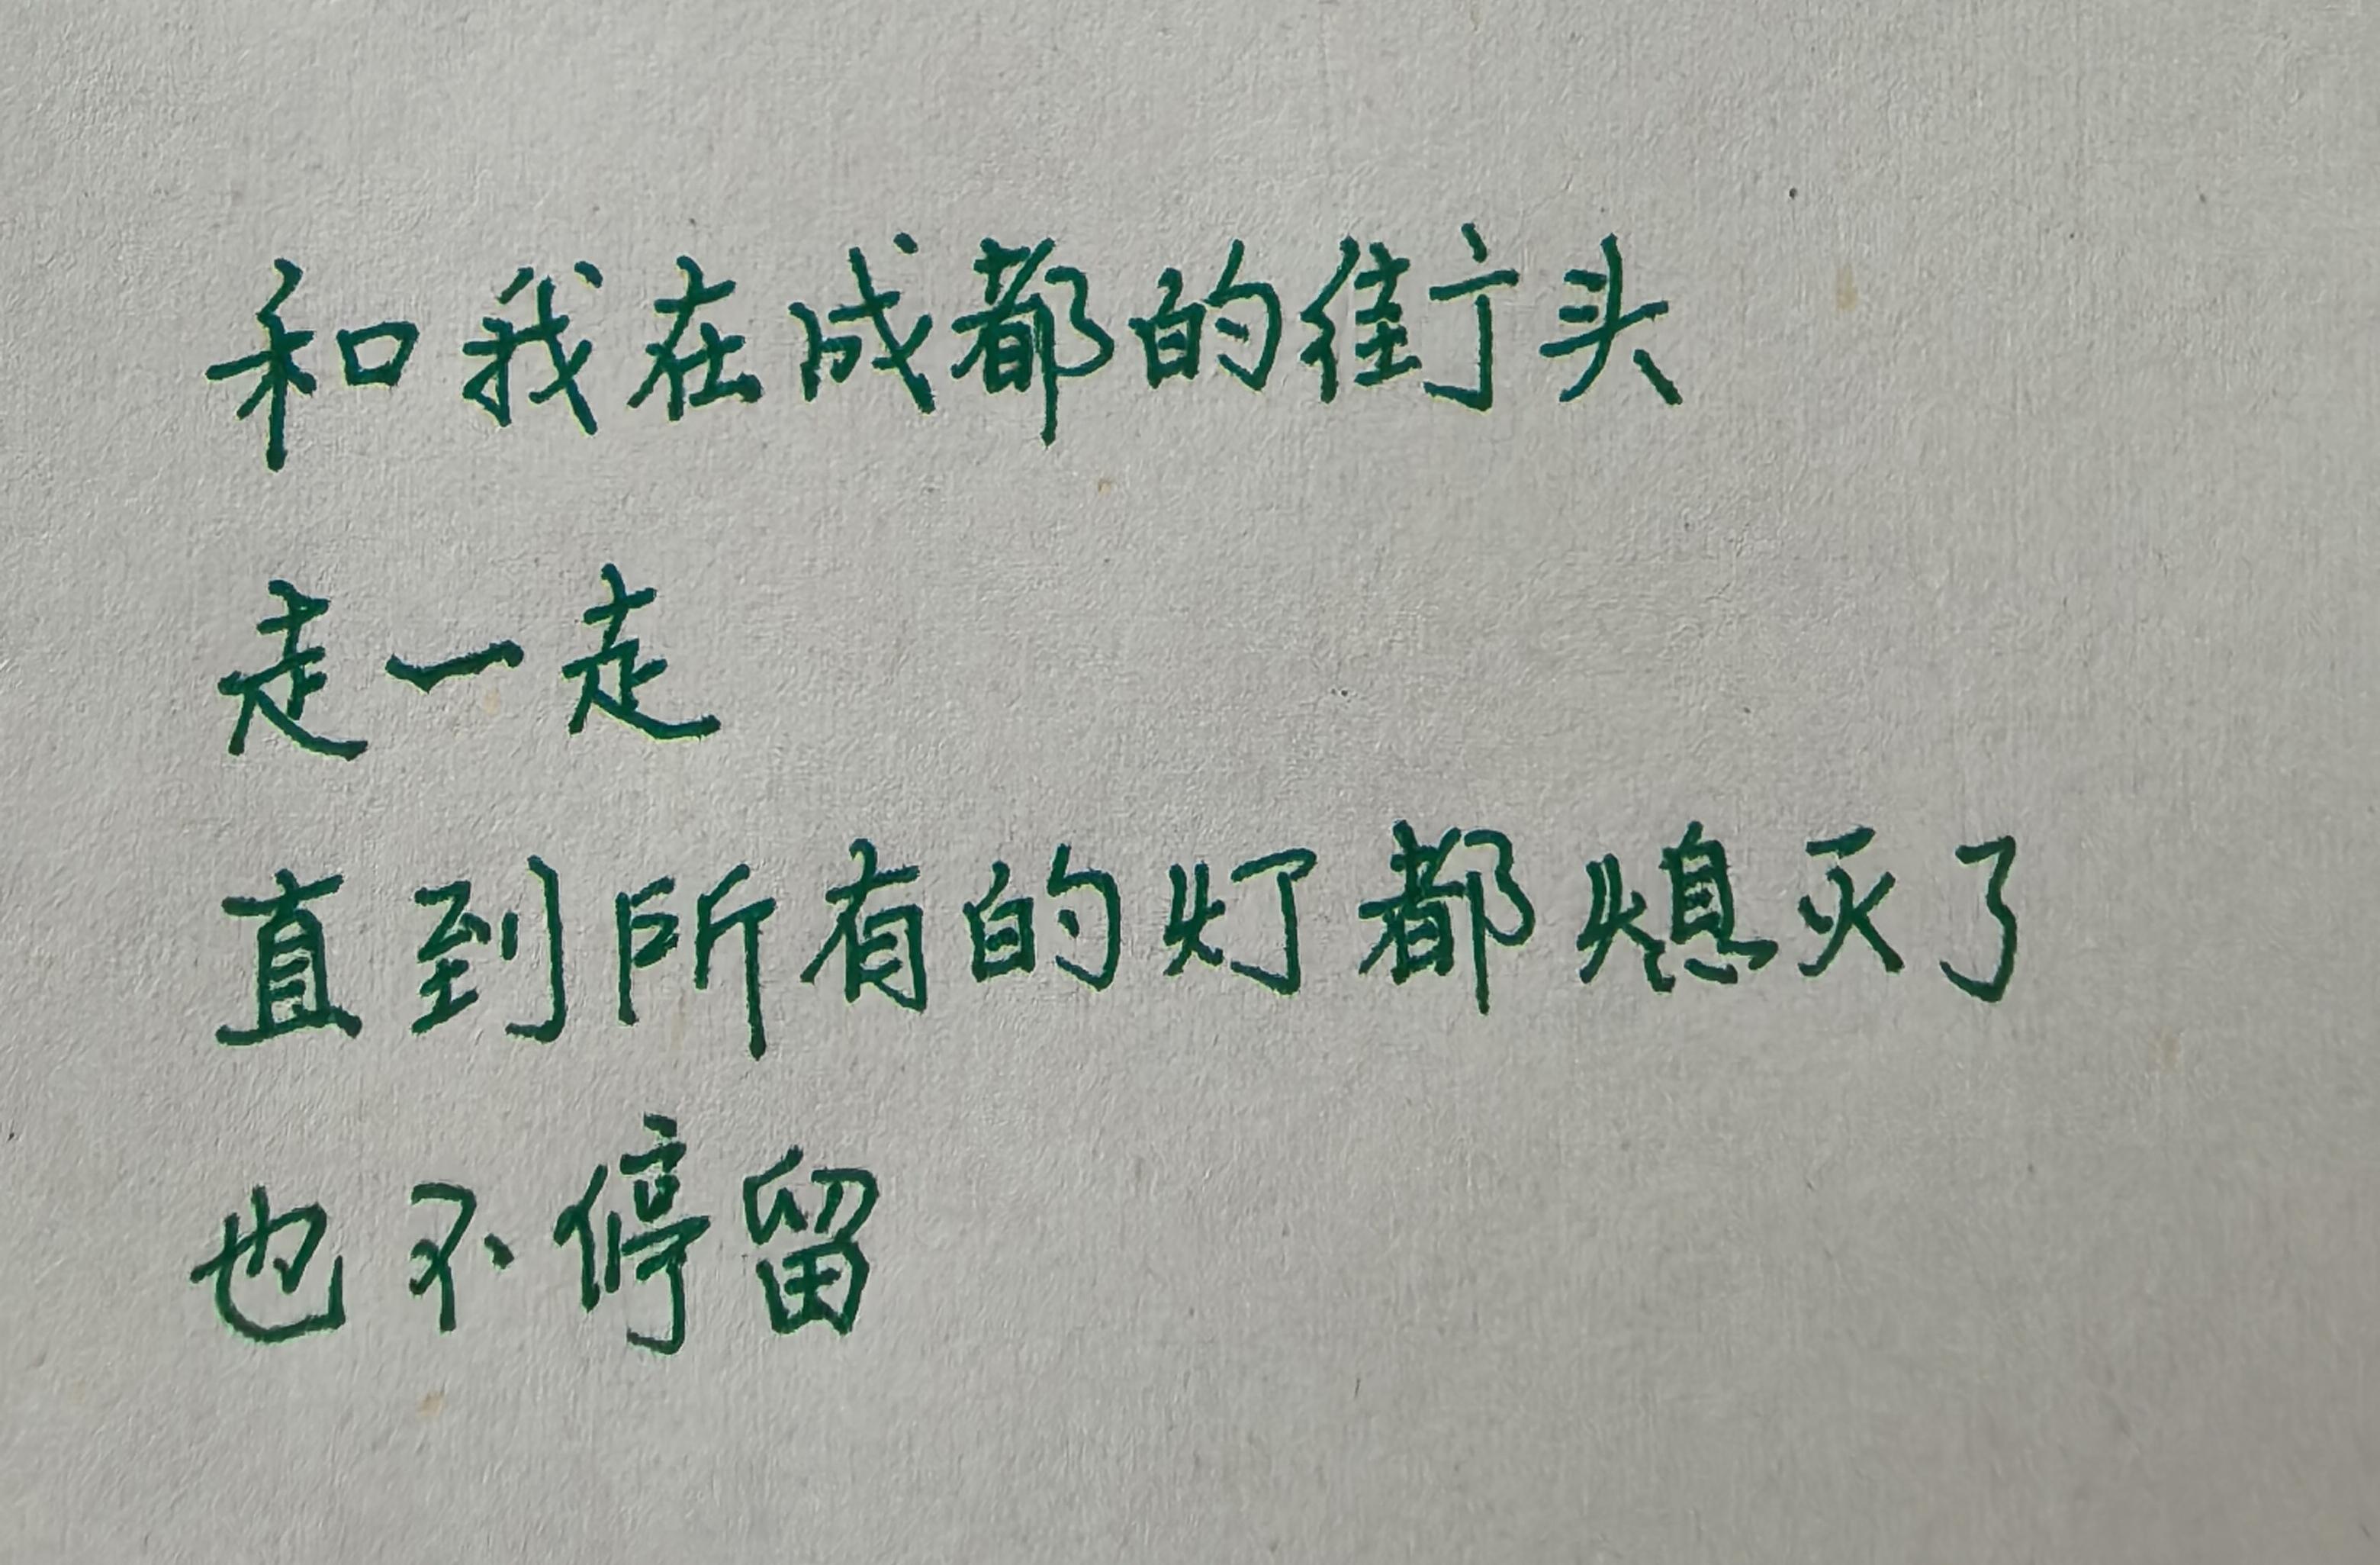 和我在成都的街头
走一走
直到所有的灯都熄灭了
也不停留